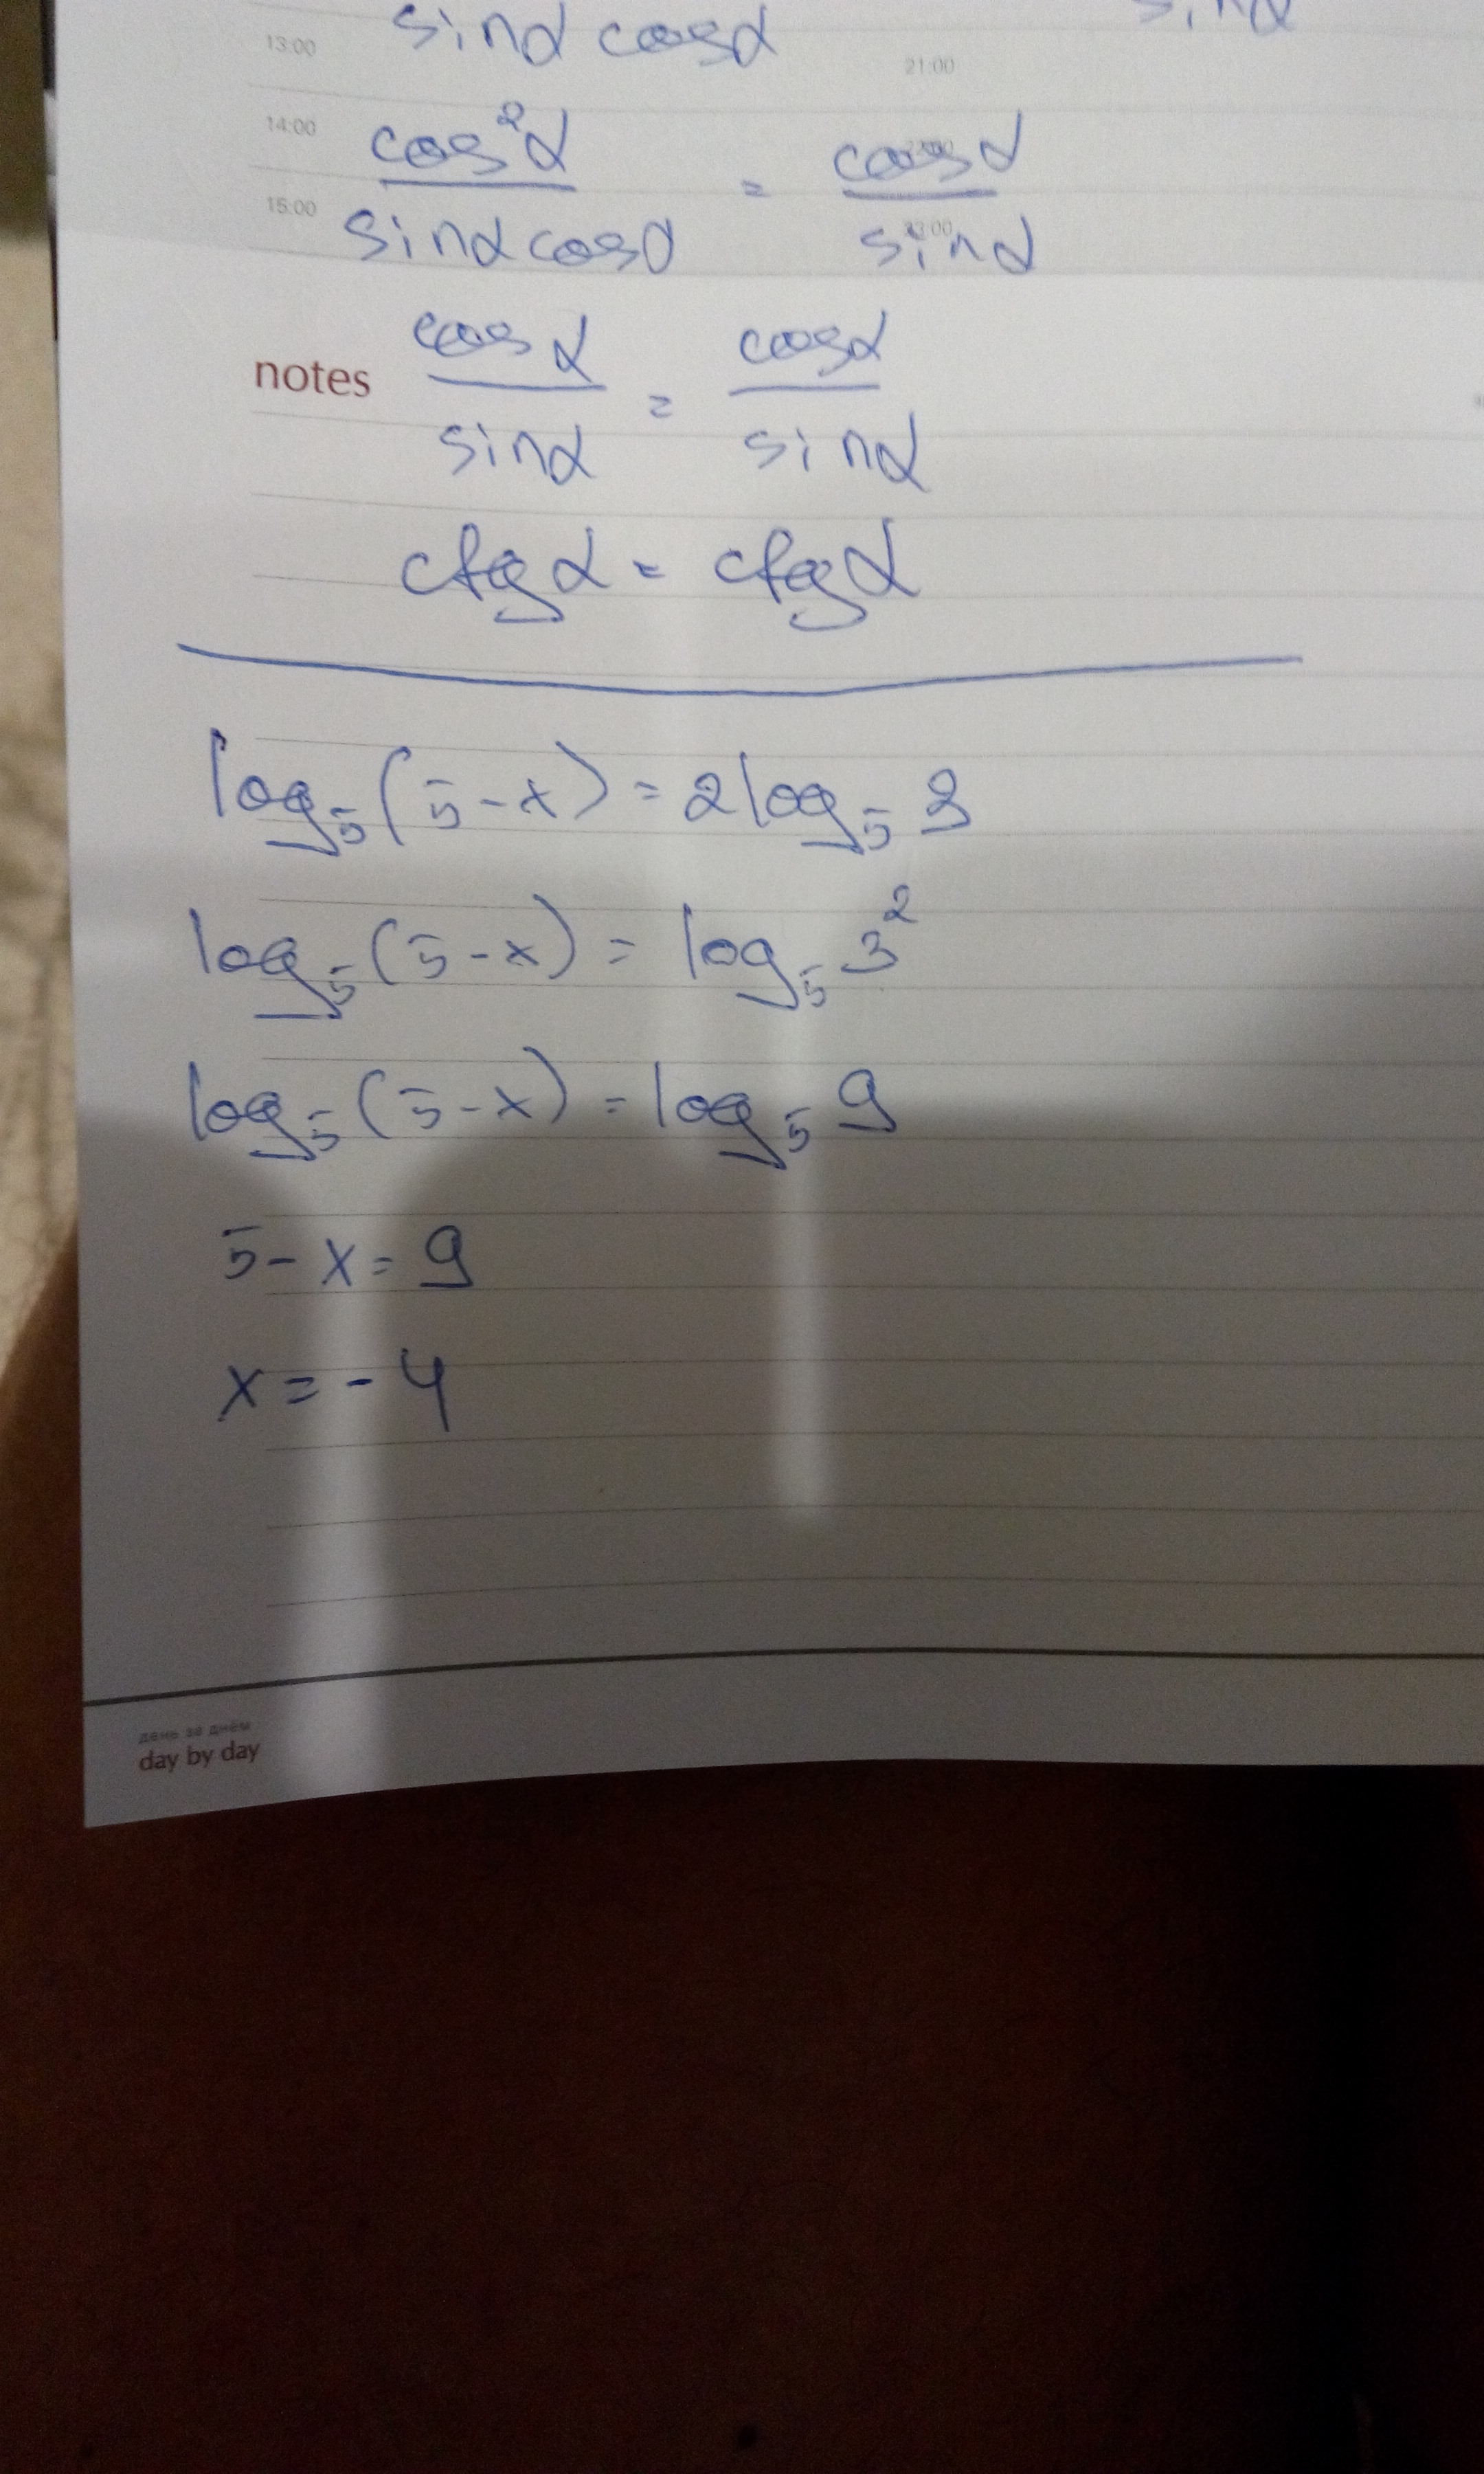 13:00 sinα cosα 21:00 sinα
14:00 cos²α / sinα cosα = cosα / sinα
15:00 23:00
notes cosα / sinα = cosα / sinα
ctgα = ctgα
log₅(5-x) = 2log₅ 3
log₅(5-x) = log₅ 3²
log₅(5-x) = log₅ 9
5-x = 9
x = -4
день за днём
day by day